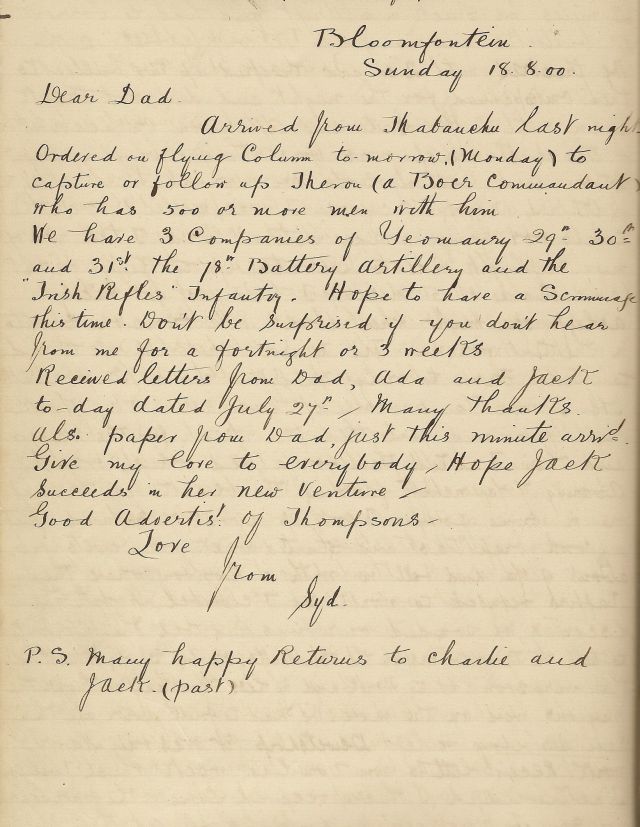 Bloomfontein.
Sunday 18.8.00.
Dear Dad.
Arrived from Thabanchu last night
Ordered on flying Column to-morrow, (Monday) to
capture or follow up Theron (a Boer Commandant)
who has 500 or more men with him
We have 3 Companies of Yeomanry 29th 30th
and 31st. the 18th Battery Artillery and the
"Irish Rifles" Infantry. Hope to have a Scrimmage
this time. Don't be Surprised if you don't hear
from me for a fortnight or 3 weeks
Recieved letters from Dad, Ada and Jack
to-day dated July 27th, Many Thanks.
Als. paper from Dad, just this minute arrivd.
Give my love to everybody, Hope Jack
Succeeds in her new Venture –
Good Advertist. of Thompsons –
Love
from
Syd.
P.S. Many happy Returns to Charlie and
Jack. (past)